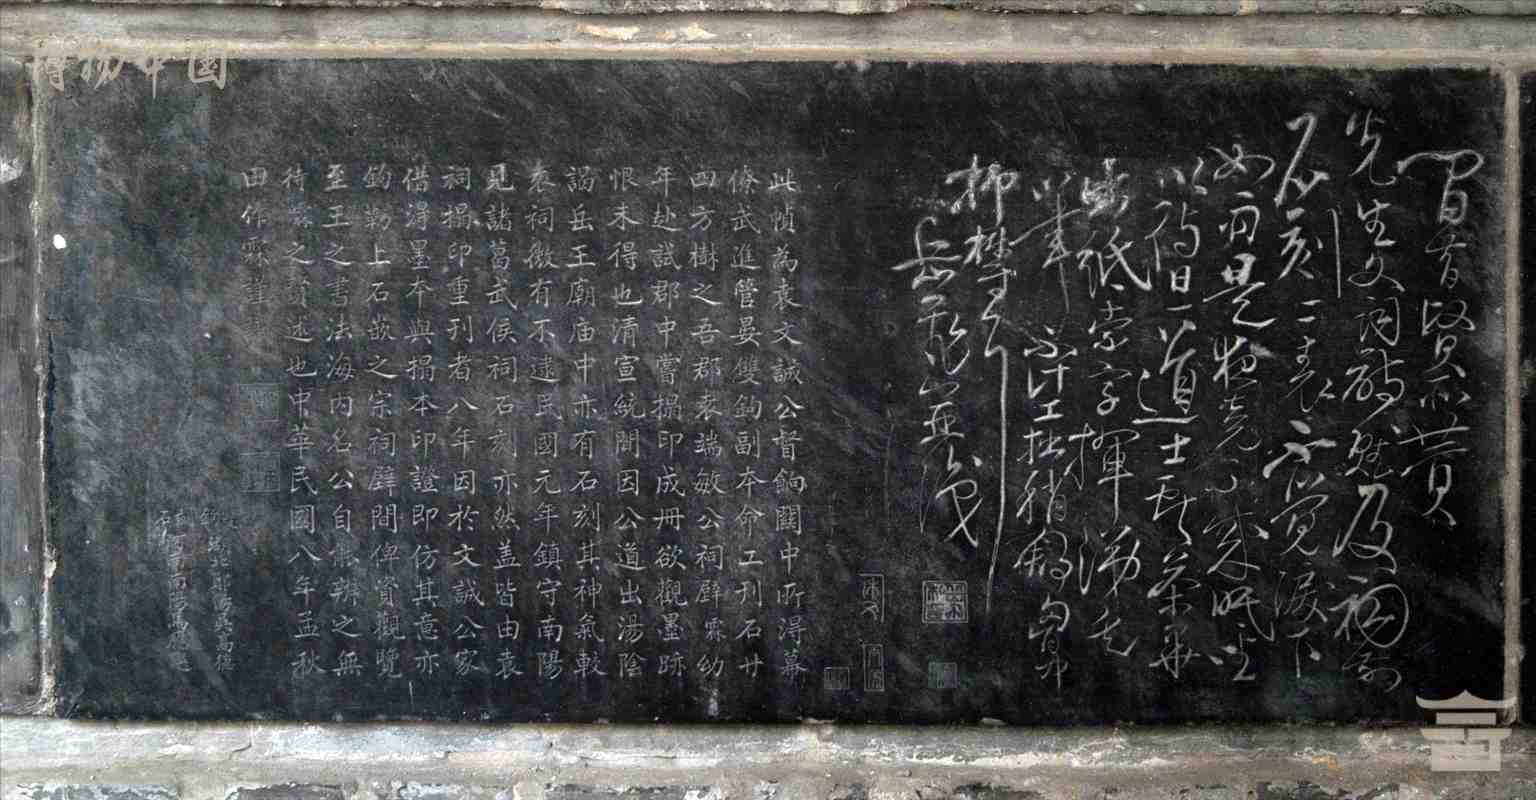 間昔賢所贊
先生文詞詩賦及祠前
石刻二表不覺淚下
如雨是夜竟不成眠坐
以待旦道士獻茶畢
出紙索字揮涕走
筆不計工拙稍舒胸中
抑鬱耳
岳飛並識
此幀為袁文誠公督餉關中所淂幕
僚武進管晏雙鉤副本命工刊石廿
四方樹之吾郡袁端敏公祠壁霖幼
年赴試郡中嘗搨印成冊欲觀墨跡
恨未得也清宣統間因公道出湯陰
謁岳王廟庙中亦有石刻其神氣較
袁祠微有不逮民國元年鎮守南陽
見諸葛武侯祠石刻亦然盖皆由袁
祠搨印重刊者八年因於文誠公家
借淂墨本與搨本印證即仿其意亦
鈎勒上石嵌之宗祠壁間俾資觀覽
至王之書法海內名公自能辨之無
待霖之贅述也中華民國八年孟秋
田作霖謹識
博物中國